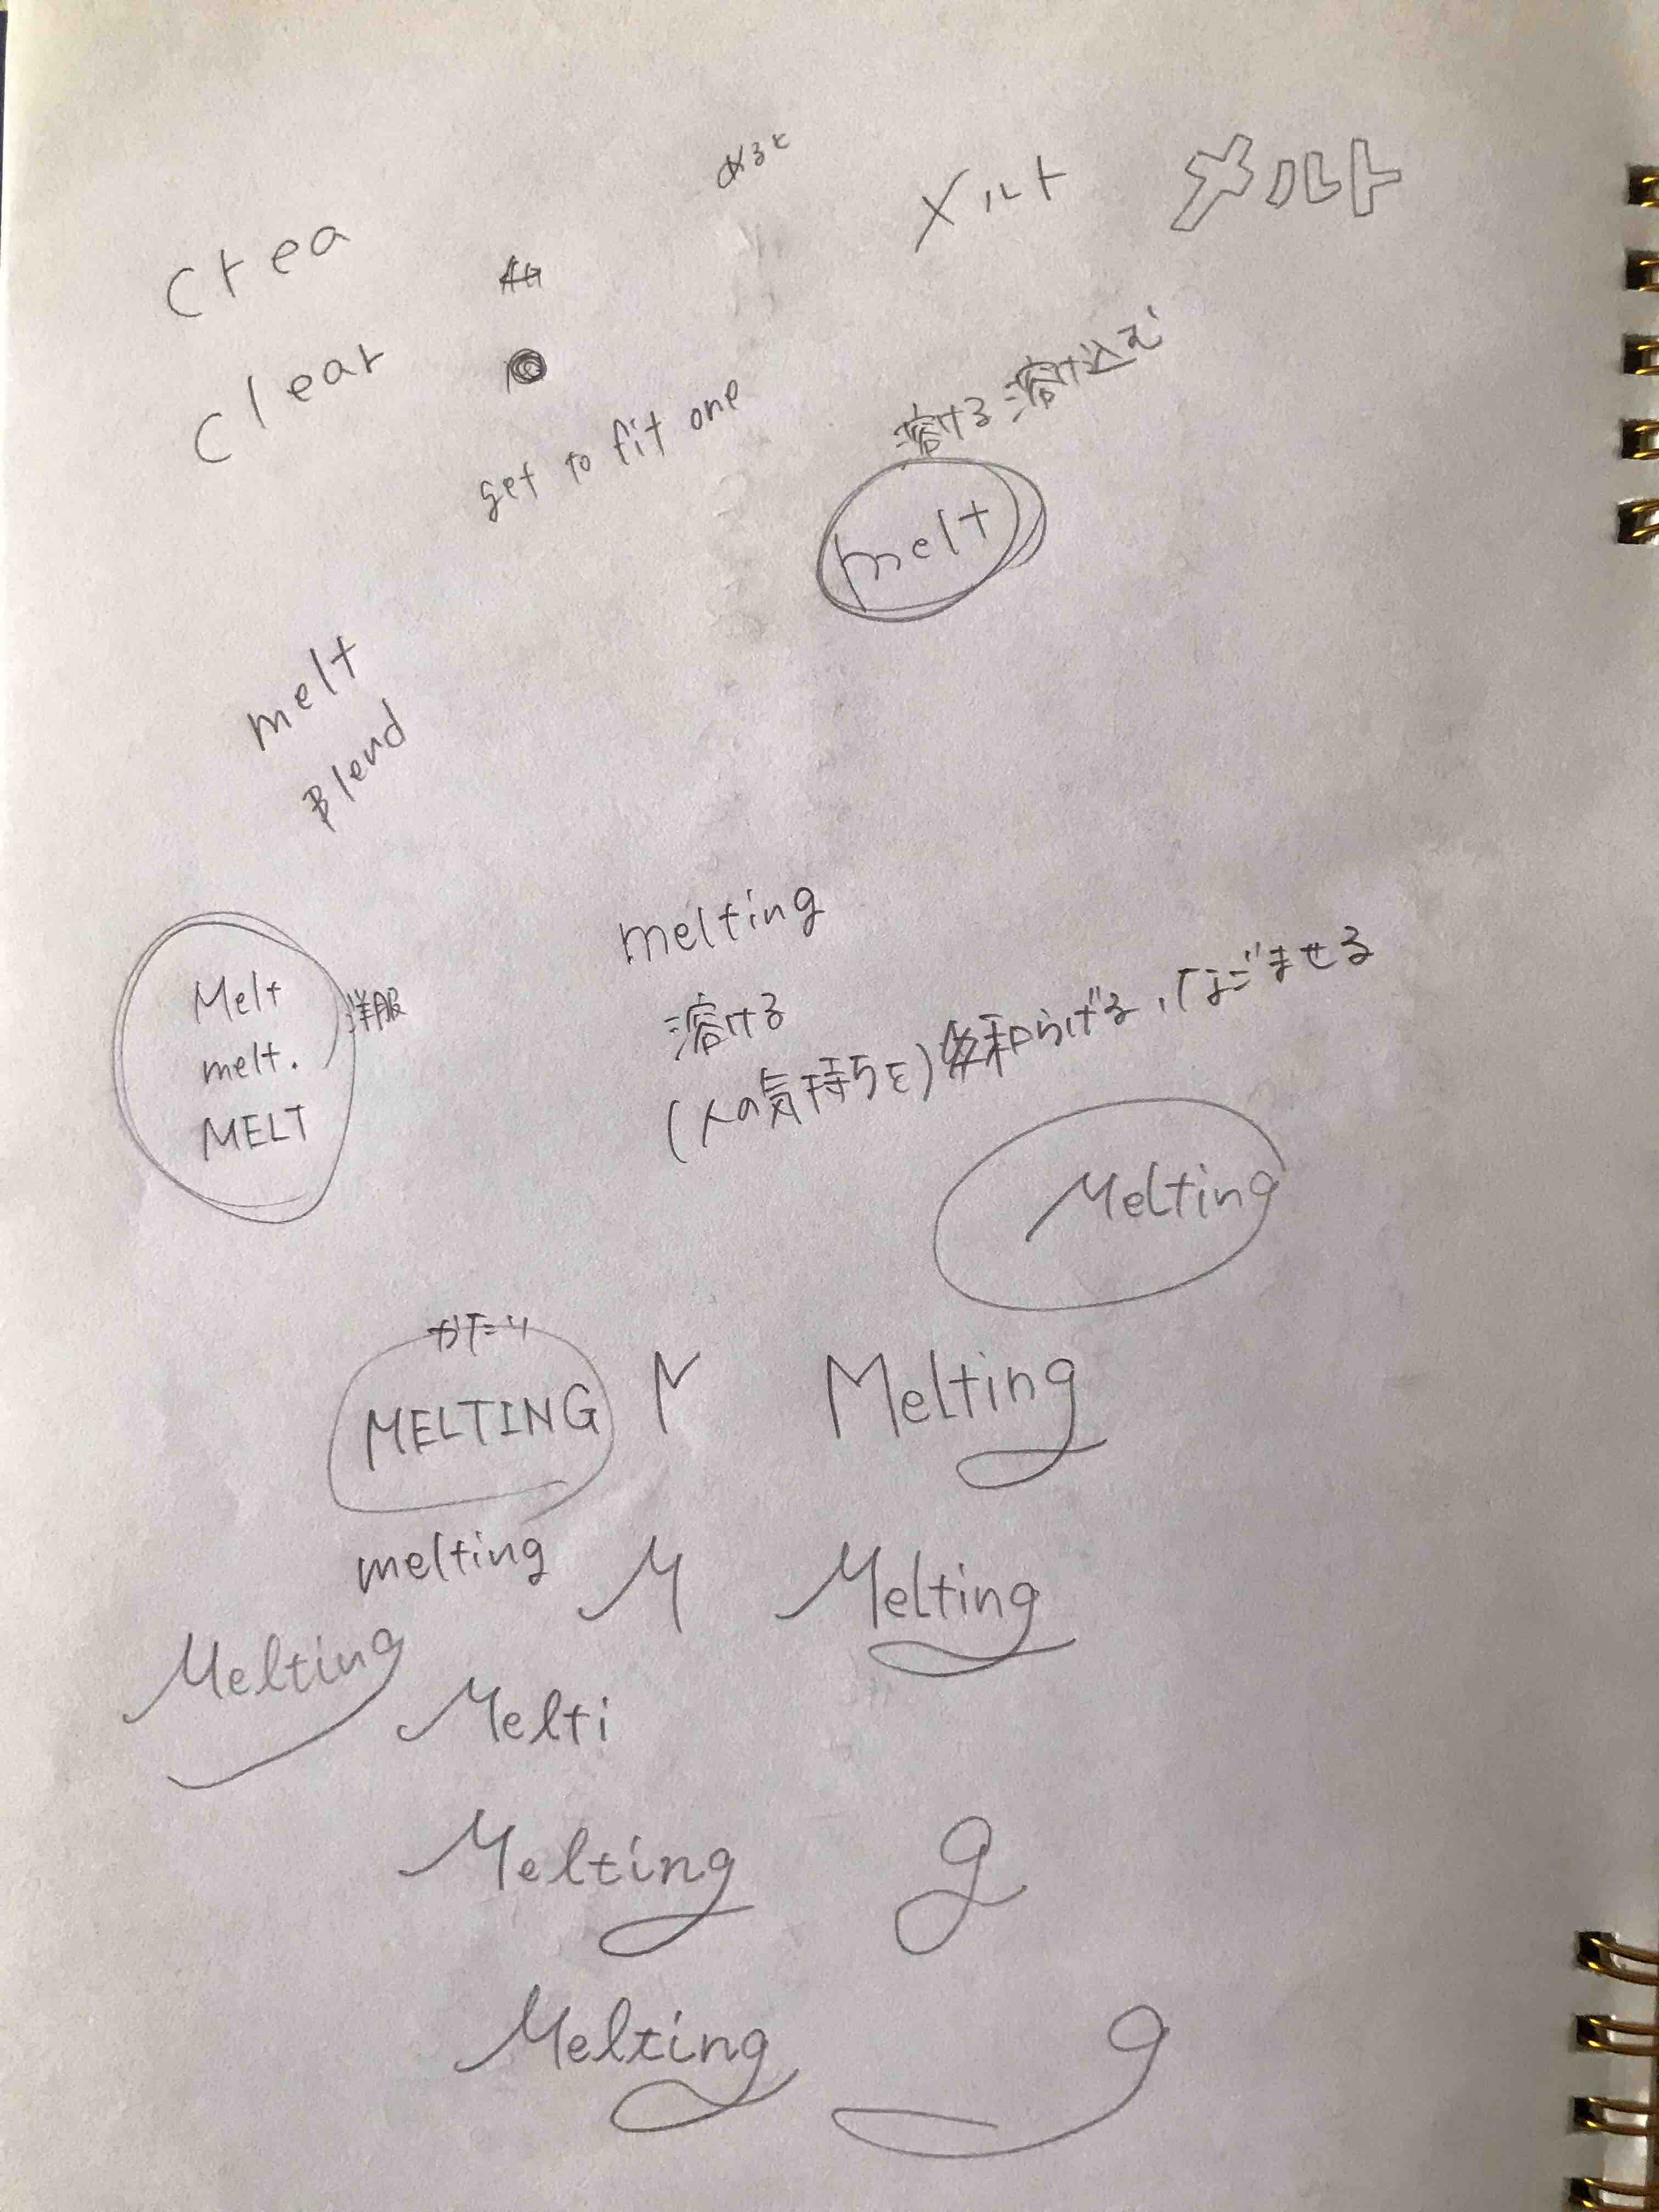 めると
メルト
メルト
crea
clear
get to fit one
溶ける 溶け込む
melt
melt
Blend
melting
Melt
melt.
MELT
洋服
溶ける
(人の気持ちを) 和らげる,なごませる
Melting
かたい
MELTING
M
Melting
melting
M
Melting
Melting
Melti
Melting
g
Melting
g